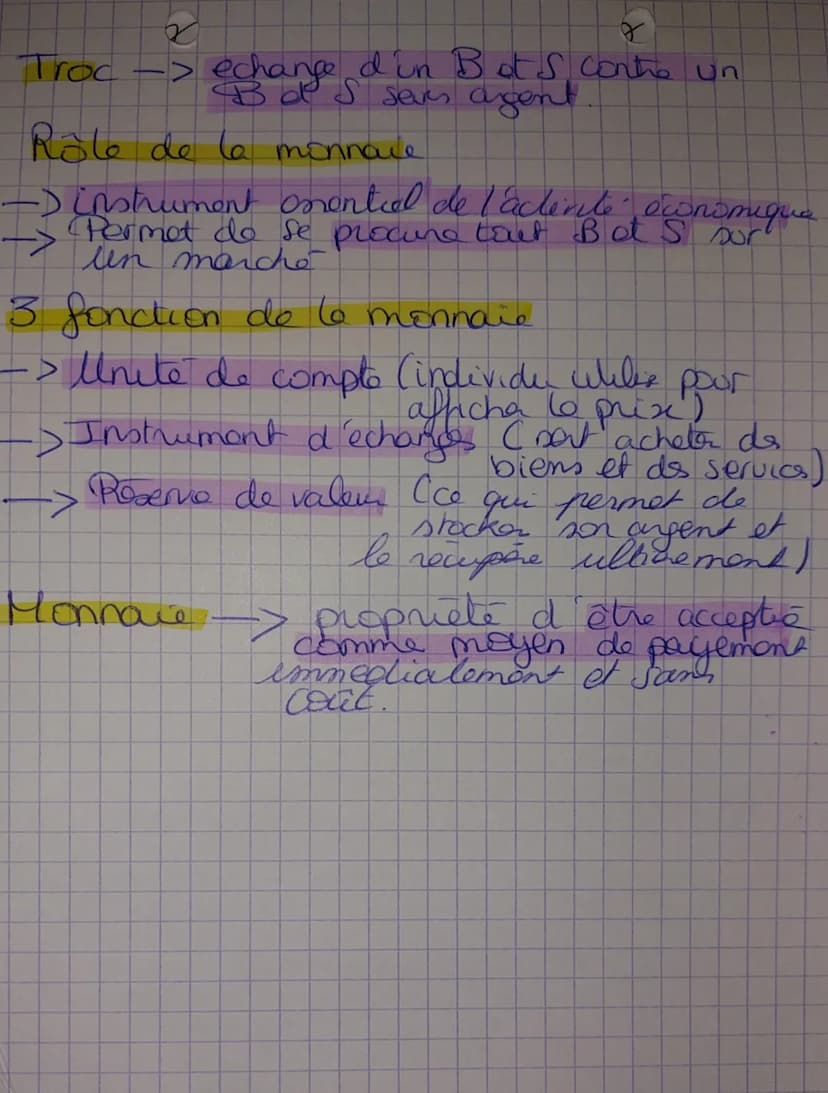 Troc -> échange d'un B et S contre un
B et S sans argent.
Rôle de la monnaie
-> instrument essentiel de l'activité économique
-> Permet de se procure tout B et S sur
un marché
3 fonction de la monnaie
-> Unité de compte (individu utilise pour
affiche le prix)
-> Instrument d'échanges (sert acheter des
biens et des services)
-> Réserve de valeur (ce qui permet de
stocker son argent et
le récupére ultérement)
Monnaie -> propriété d'être accepté
comme moyen de payement
immédiatement et sans
coût.